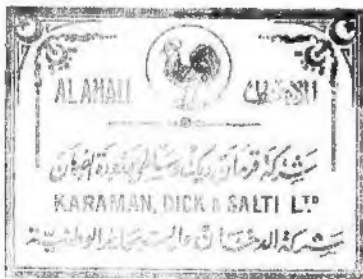 ALAHALI الاهلي
شركة قرمان ديك وسلطي المحدودة الضمان
KARAMAN, DICK & SALTI LTD
شركة الدخان والسجاير الوطنية